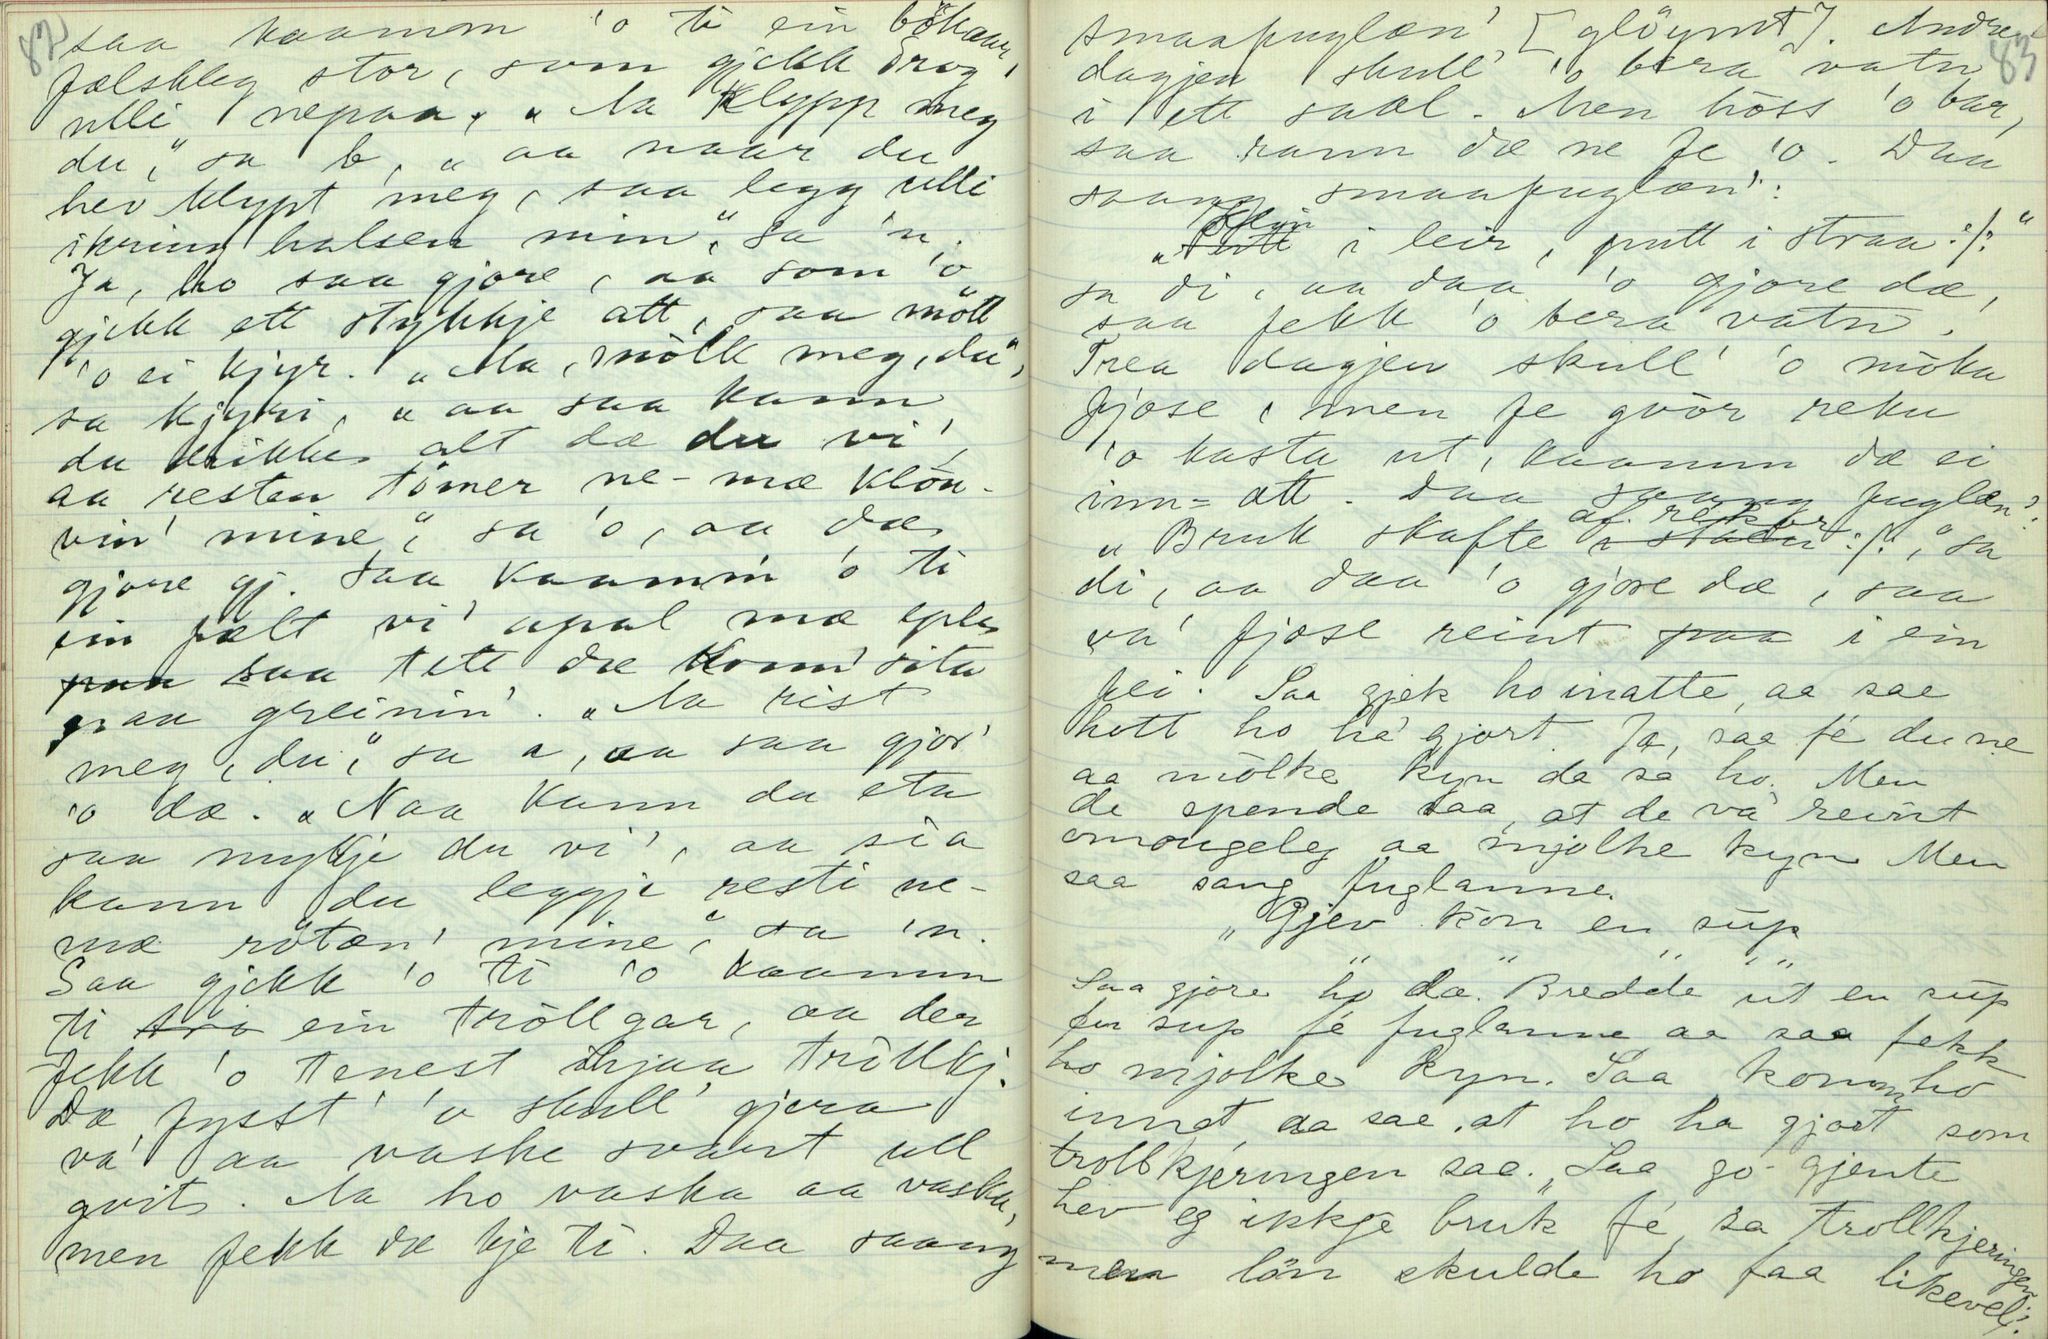 82
saa kaamm 'o ti ein bökaar,
fælsleg stor, som gjekk drog
ulli nepaa. „Aa klypp meg
du," sa b, „aa naar du
hev klypt meg, saa legg ulli
ikring halsen min," sa 'n.
Ja, ho saa gjore, aa som 'o
gjekk ett stykkje att, saa mött
'o ei kjyr. „Aa, mölk meg, du",
sa kjyri, „aa saa kann
du drikke alt dæ du vi',
aa resten tömer ne-mæ klöu-
vin' mine," sa 'o, aa dæ
gjore gj. Saa kaamm 'o ti
ein fælt vi' apal mæ eple
paa saa tett dæ konn' sita
paa greinin'. „Aa rist
meg, du," sa a, aa saa gjor'
'o dæ. „Naa kann du eta
saa mykje du vi', aa sia
kann du leggje resti ne-
mæ rötæn' mine," sa 'n.
Saa gjekk 'o ti 'o kaamm
ti tro ein tröllgar, aa der
fekk 'o tenest ihjaa tröllkj.
Dæ fysst' 'o skull' gjera
va' aa vaske svart ull
gvit. Aa ho vaska aa vaska,
men fekk dæ kje ti. Daa saang
83
smaafuglæn' [glöymt]. Andre
dagjen skull' 'o bera vatn
i ett saal. Men höss 'o bar,
saa rann dæ ne fe 'o. Daa
saang smaafuglæn':
Klin
„Putt i leir, putt i straa :/:"
sa di, aa daa 'o gjore dæ,
saa fekk 'o bera vatn.
Trea dagjen skull' 'o möka
fjose, men fe gvör reku
'o kasta ut, kaamm dæ ei
inn-att. Daa saang fuglæn':
af rekur
„Bruk skafte i staen :/:," sa
di, aa daa 'o gjore dæ, saa
va' fjose reint paa i ein
fei. Saa gjek ho inatte, aa sae
hott ho ha' gjort. Ja, saa fé du ne
aa mölke kyn da sa ho. Men
de spende saa, at de va' reint
omougeleg aa mjolke kyn. Men
saa sang fuglanne.
„Gjev kon en sup
" " " " "
Saa gjore ho dæ. Bredde ut en sup
fer sup fé fuglanne aa saa fekk
ho mjolke kyn. Saa komm ho
innat aa sae, at ho ha gjort som
trollkjeringen saa. „Saa go gjente
hev eg ikkje bruk fé, sa trollkjeringen
men lön skulde ho faa likevel.